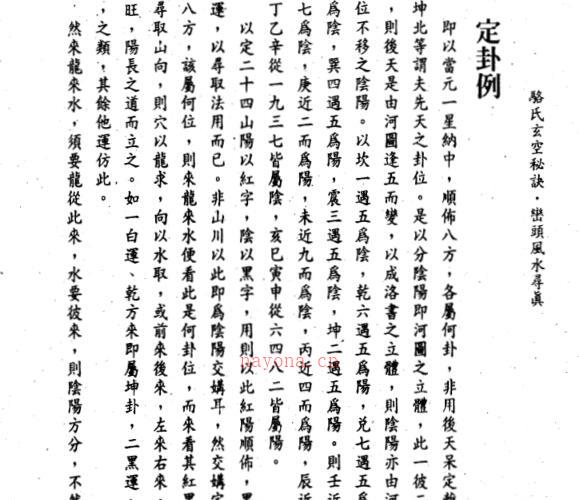 駱氏玄空秘訣·巒頭風水尋真
定卦例
即以當元一星納中，順佈八方，各屬何卦，非用後天呆定乾
坤北等謂夫先天之卦位。是以分陰陽即河圖之立體，此一彼二
，則後天是由河圖逢五而變，以成洛書之立體，則陰陽亦由河
位不移之陰陽。以坎一遇五為陰，乾六遇五為陽，兌七遇五為
為陰，巽四遇五為陽，震三遇五為陰，坤二遇五為陽。則壬近
七為陰，庚近二而為陽，未近九而為陰，丙近四而為陽，辰近
丁乙辛從一九三七皆屬陰，亥巳寅申從六四八二皆屬陽。
以定二十四山陽以紅字，陰以黑字，用則以此紅陽順佈，黑
運，以尋取法用而已。非山川以此即為陰陽交媾耳，然交媾定
八方，該屬何位，則來龍來水便看此是何卦位，而來看其紅黑
尋取山向，則穴以龍求，向以水取，或前來後來，左來右來，
旺，陽長之道而立之。如一白運、乾方來即屬坤卦，二黑運、
，之類，其餘他運仿此。
然來龍來水，須要龍從此來，水要彼來，則陰陽方分，不然
nayona.cn